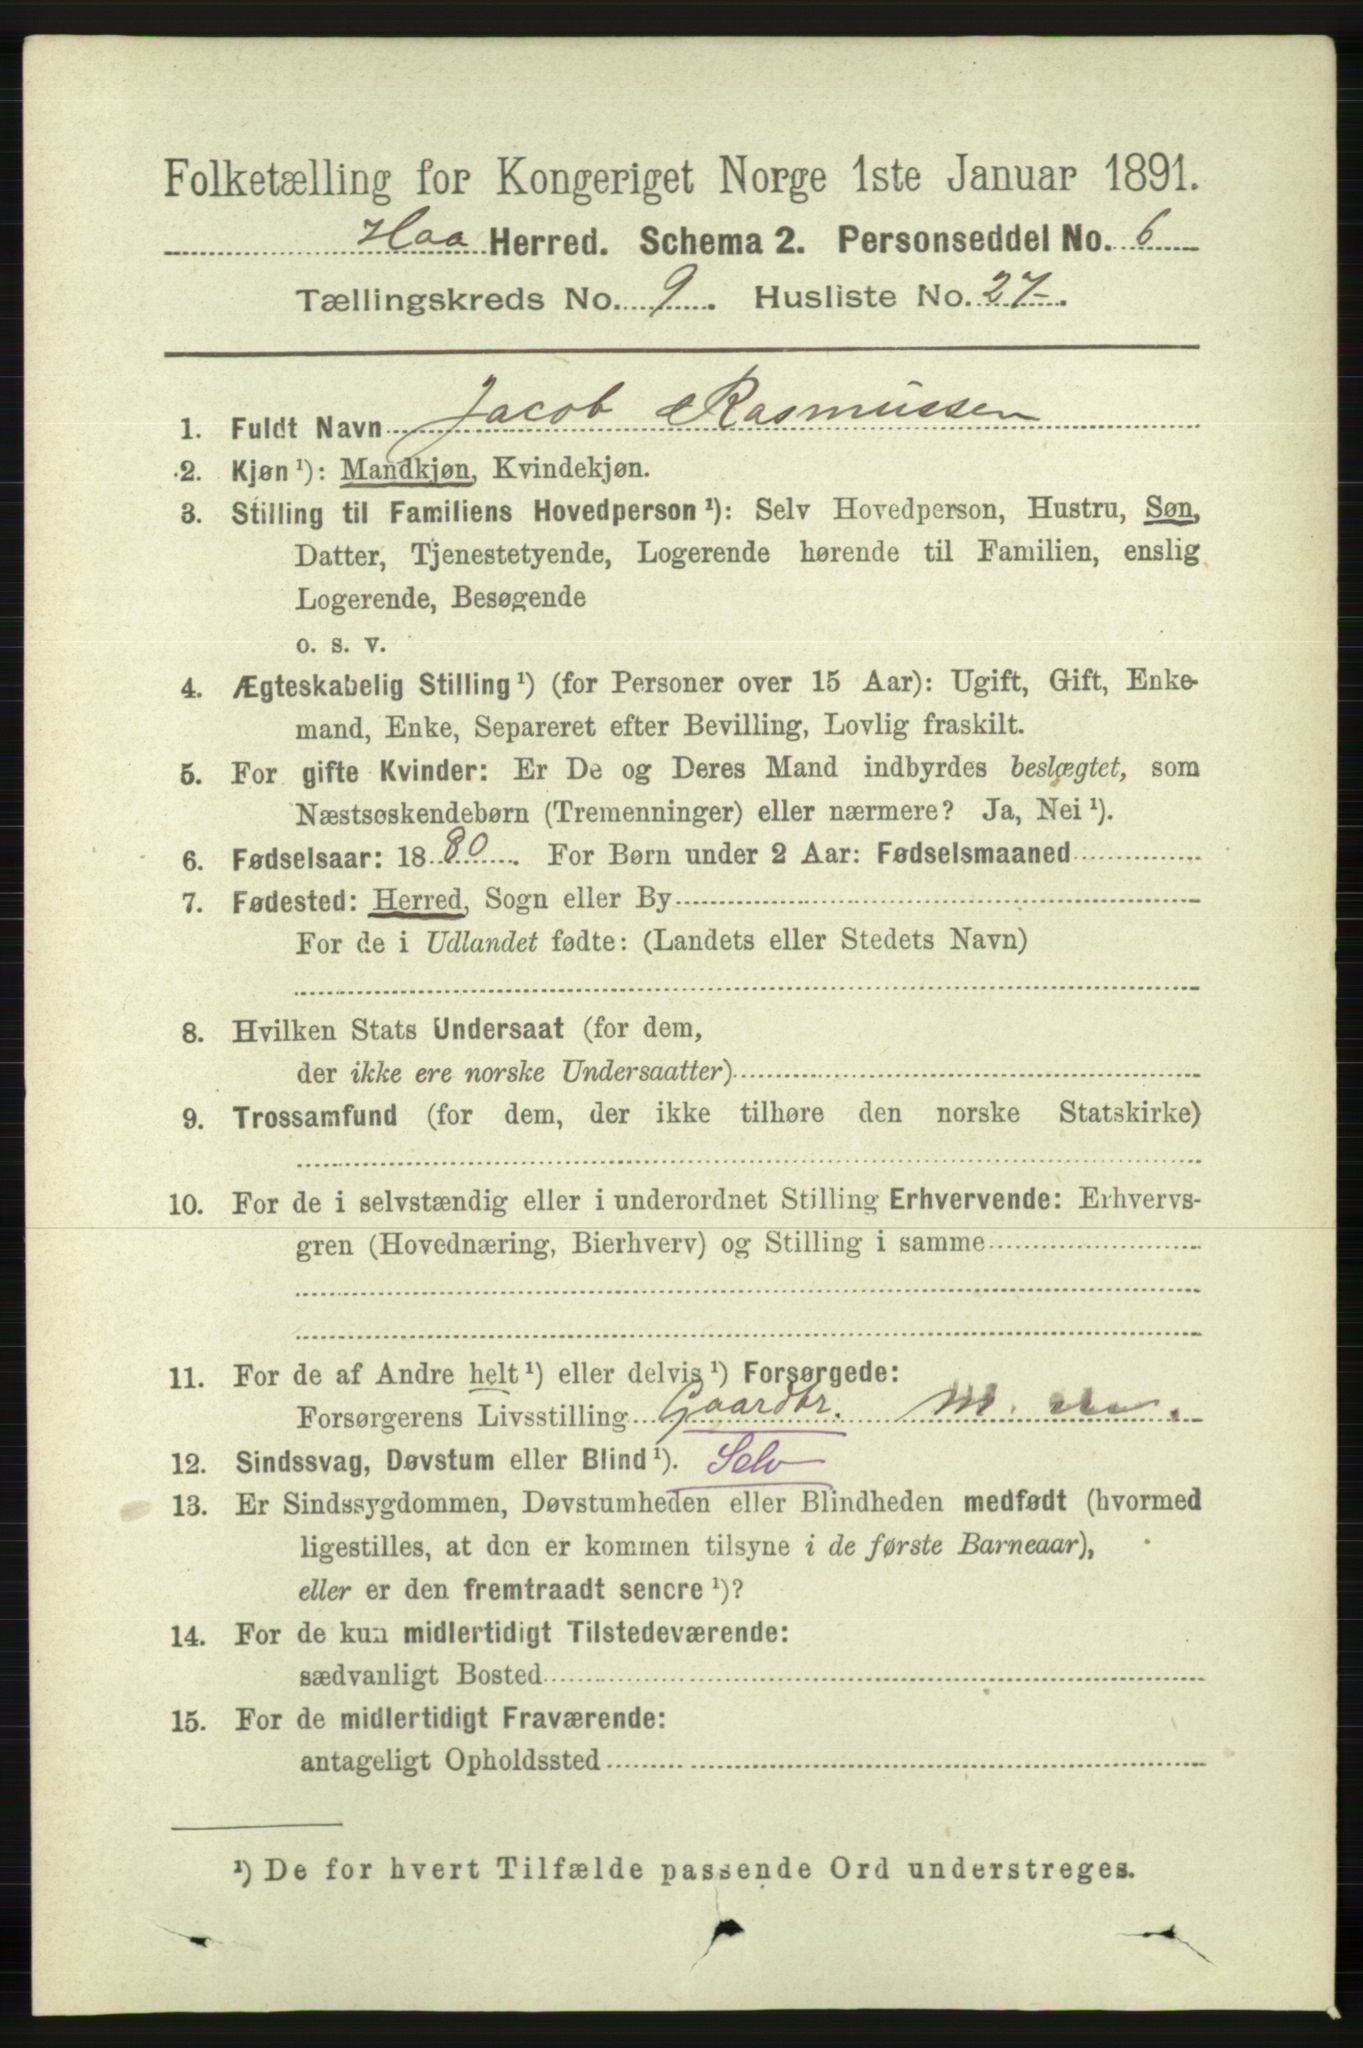 Folketælling for Kongeriget Norge 1ste Januar 1891.
Haa Herred. Schema 2. Personseddel No. 6
Tællingskreds No. 9. Husliste No. 27.
1. Fuldt Navn Jacob Rasmussen
2. Kjøn ¹): Mandkjøn, Kvindekjøn.
3. Stilling til Familiens Hovedperson ¹): Selv Hovedperson, Hustru, Søn,
Datter, Tjenestetyende, Logerende hørende til Familien, enslig
Logerende, Besøgende
o. s. v.
4. Ægteskabelig Stilling ¹) (for Personer over 15 Aar): Ugift, Gift, Enke-
mand, Enke, Separeret efter Bevilling, Lovlig fraskilt.
5. For gifte Kvinder: Er De og Deres Mand indbyrdes beslægtet, som
Næstsøskendebørn (Tremenninger) eller nærmere? Ja, Nei ¹).
6. Fødselsaar: 1880. For Børn under 2 Aar: Fødselsmaaned
7. Fødested: Herred, Sogn eller By
For de i Udlandet fødte: (Landets eller Stedets Navn)
8. Hvilken Stats Undersaat (for dem,
der ikke ere norske Undersaatter)
9. Trossamfund (for dem, der ikke tilhøre den norske Statskirke)
10. For de i selvstændig eller i underordnet Stilling Erhvervende: Erhvervs-
gren (Hovednæring, Bierhverv) og Stilling i samme
11. For de af Andre helt ¹) eller delvis ¹) Forsørgede:
Forsørgerens Livsstilling Gaardbr. M.
12. Sindssvag, Døvstum eller Blind ¹). Selv
13. Er Sindssygdommen, Døvstumheden eller Blindheden medfødt (hvormed
ligestilles, at den er kommen tilsyne i de første Barneaar),
eller er den fremtraadt senere ¹)?
14. For de kun midlertidigt Tilstedeværende:
sædvanligt Bosted
15. For de midlertidigt Fraværende:
antageligt Opholdssted
¹) De for hvert Tilfælde passende Ord understreges.